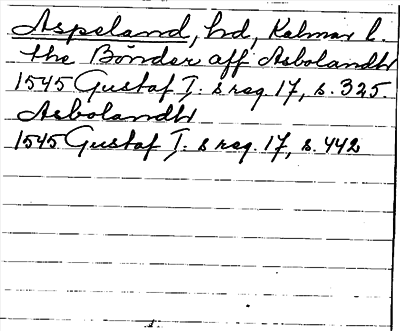 Aspeland, hd, Kalmar l.
the Bönder aff Asbolandh
1545 Gustaf I:s reg. 17, s. 325.
Asbolandh
1545 Gustaf I:s reg. 17, s. 442